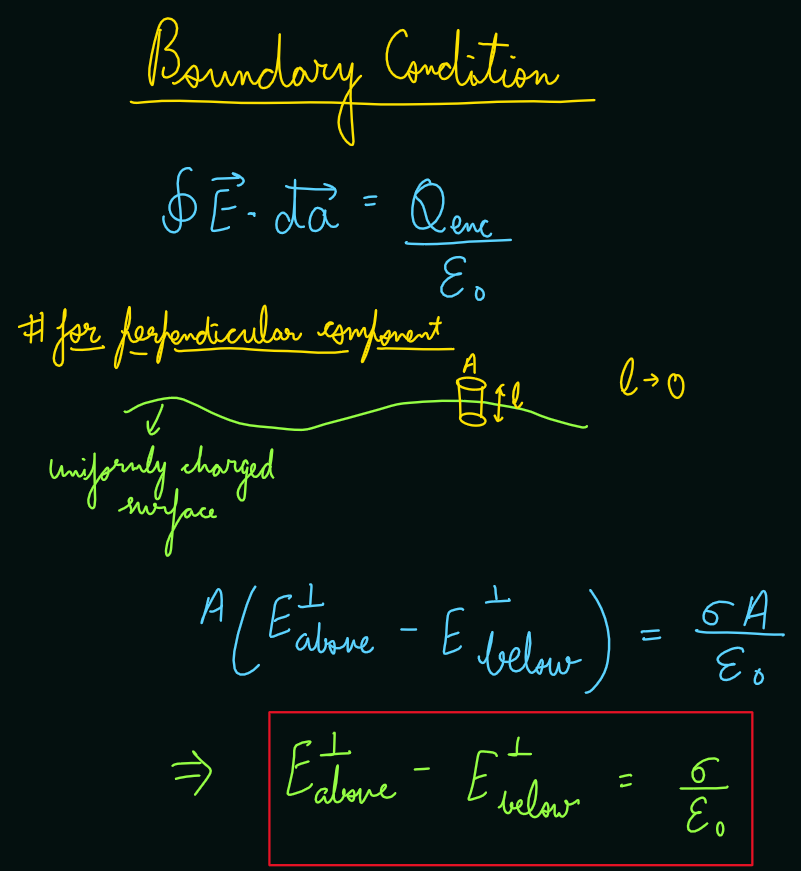 Boundary Condition
∮ E⃗ · d⃗a = Qenc / ε₀
# for perpendicular component
A
l
l → 0
uniformly charged
surface
A (E⊥above − E⊥below) = σA / ε₀
⇒ E⊥above − E⊥below = σ / ε₀